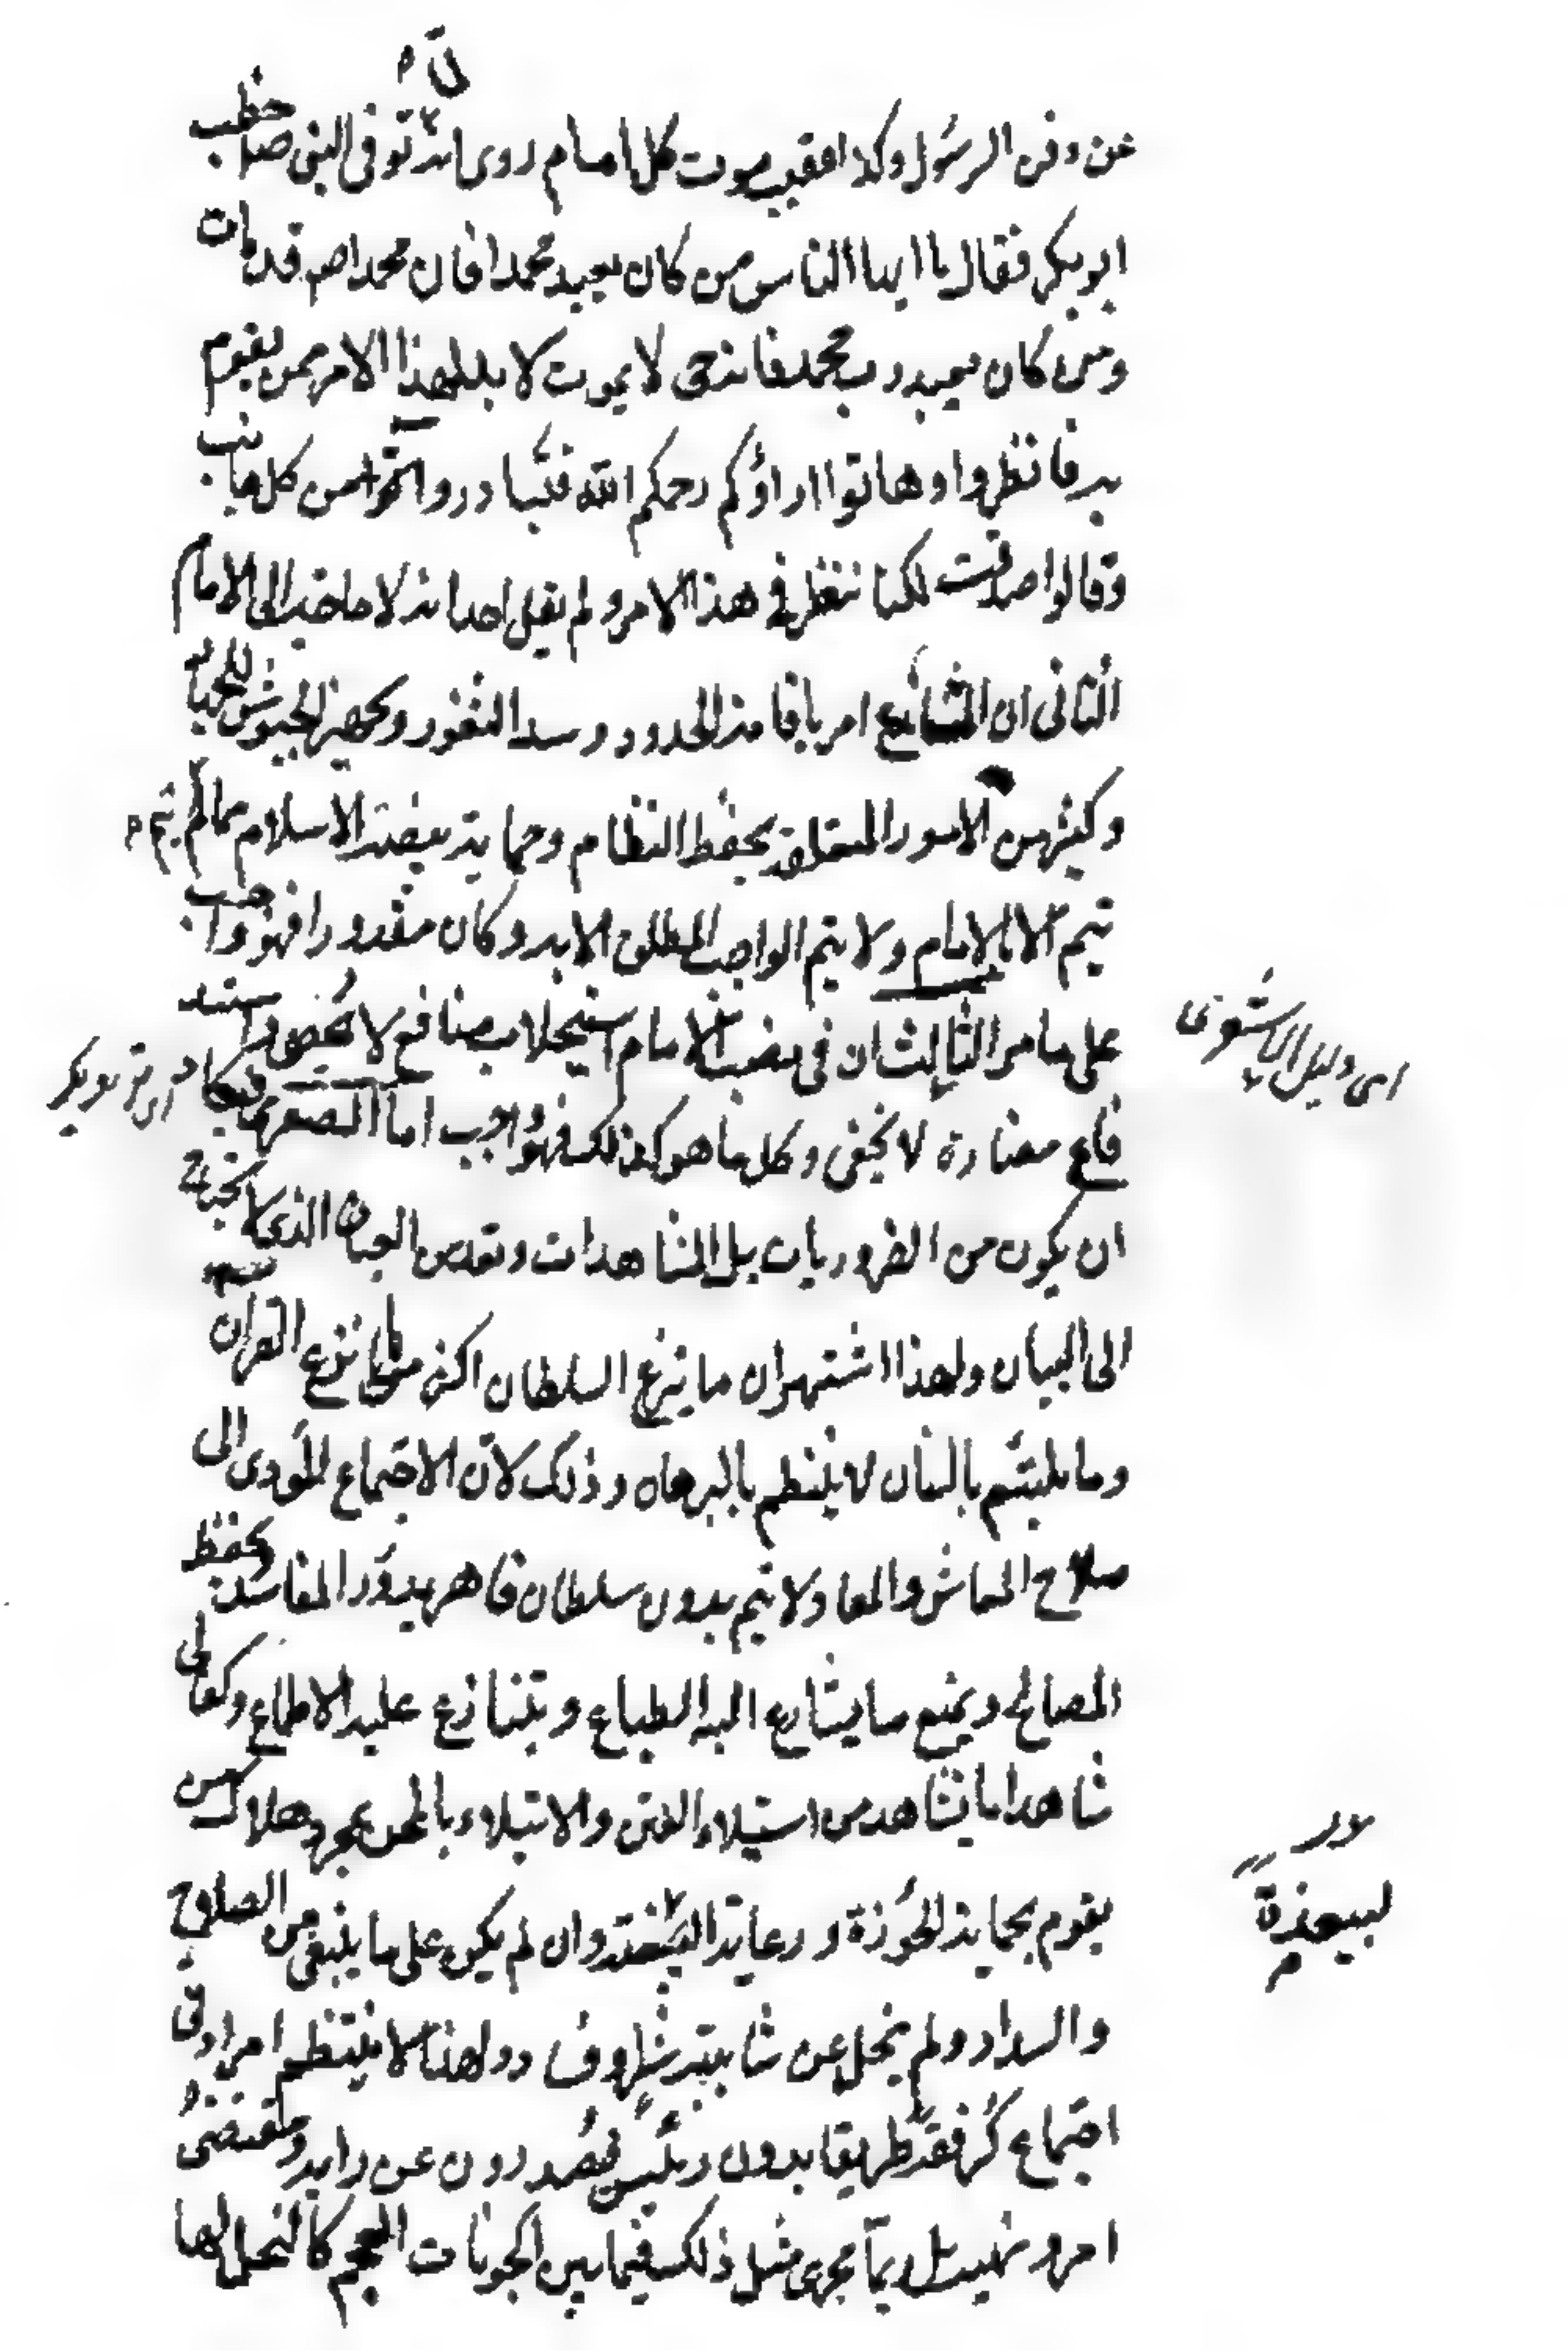 عن دفن الرسول وكذا عقيب موت كل امام روى انه لما توفى النبى ص خطب
ابو بكر فقال يا ايها الناس من كان يعبد محمدا فان محمدا صم قدمات
ومن كان يعبد رب محمد فانه حى لا يموت لا بد لهذا الامر ممن يقوم
به فانظروا وهاتوا اراؤكم رحمكم الله فتبادروا من كل جانب
وقالوا صدقت لكنا ننظر فى هذا الامر ولم يقل احد انه لا حاجة الى الامام
الثانى ان الشارع امر باقامة الحدود وسد الثغور وتجهيز الجيوش للجهاد
وكثير من الامور المتعلقة بحفظ النظام وحماية بيضة الاسلام مما لم يتم
يتم الا بالامام ولا يتم الواجب المطلق الا به وكان مقدورا فهو واجب
على ما مر الثالث ان فى نصب الامام استجلاب منافع لا تحصى واستد
فاع مضارة لا يخفى وكل ما هو كذلك فهو واجب اما الصغرى فيكاد
ان يكون من الضروريات بل المشاهدات وتعد من العيان الذى لا يحتاج
الى البيان ولهذا اشتهر ان ما يزع السلطان اكثر مما يزع القران
وما يلتئم بالسنان لا ينتظم بالبرهان وذلك لان الاجتماع المؤدى الى
صلاح المعاش والمعاد لا يتم بدون سلطان قاهر يدرء المفاسد ويحفظ
المصالح ويمنع ما يتسارع اليه الطباع ويتنازع عليه الاطماع وكفاك
شاهدا ما يشاهد من استيلاء الفتن والابتلاء بالمحن بمجرد هلاك من
يقوم بحماية الحوزة ورعاية البيضة وان لم يكن على ما ينبغى من الصلاح
والسداد ولم يخل عن شائبة شر وفساد ولهذا لا ينتظم امر ادنى
اجتماع كرفقة طريق بدون رئيس يصدرون عن رايه ومقتضى
امره ونهيه بل ربما يجرى مثل ذلك فيما بين الحيونات العجم كالنحل لها
اى دليل الاشعرى